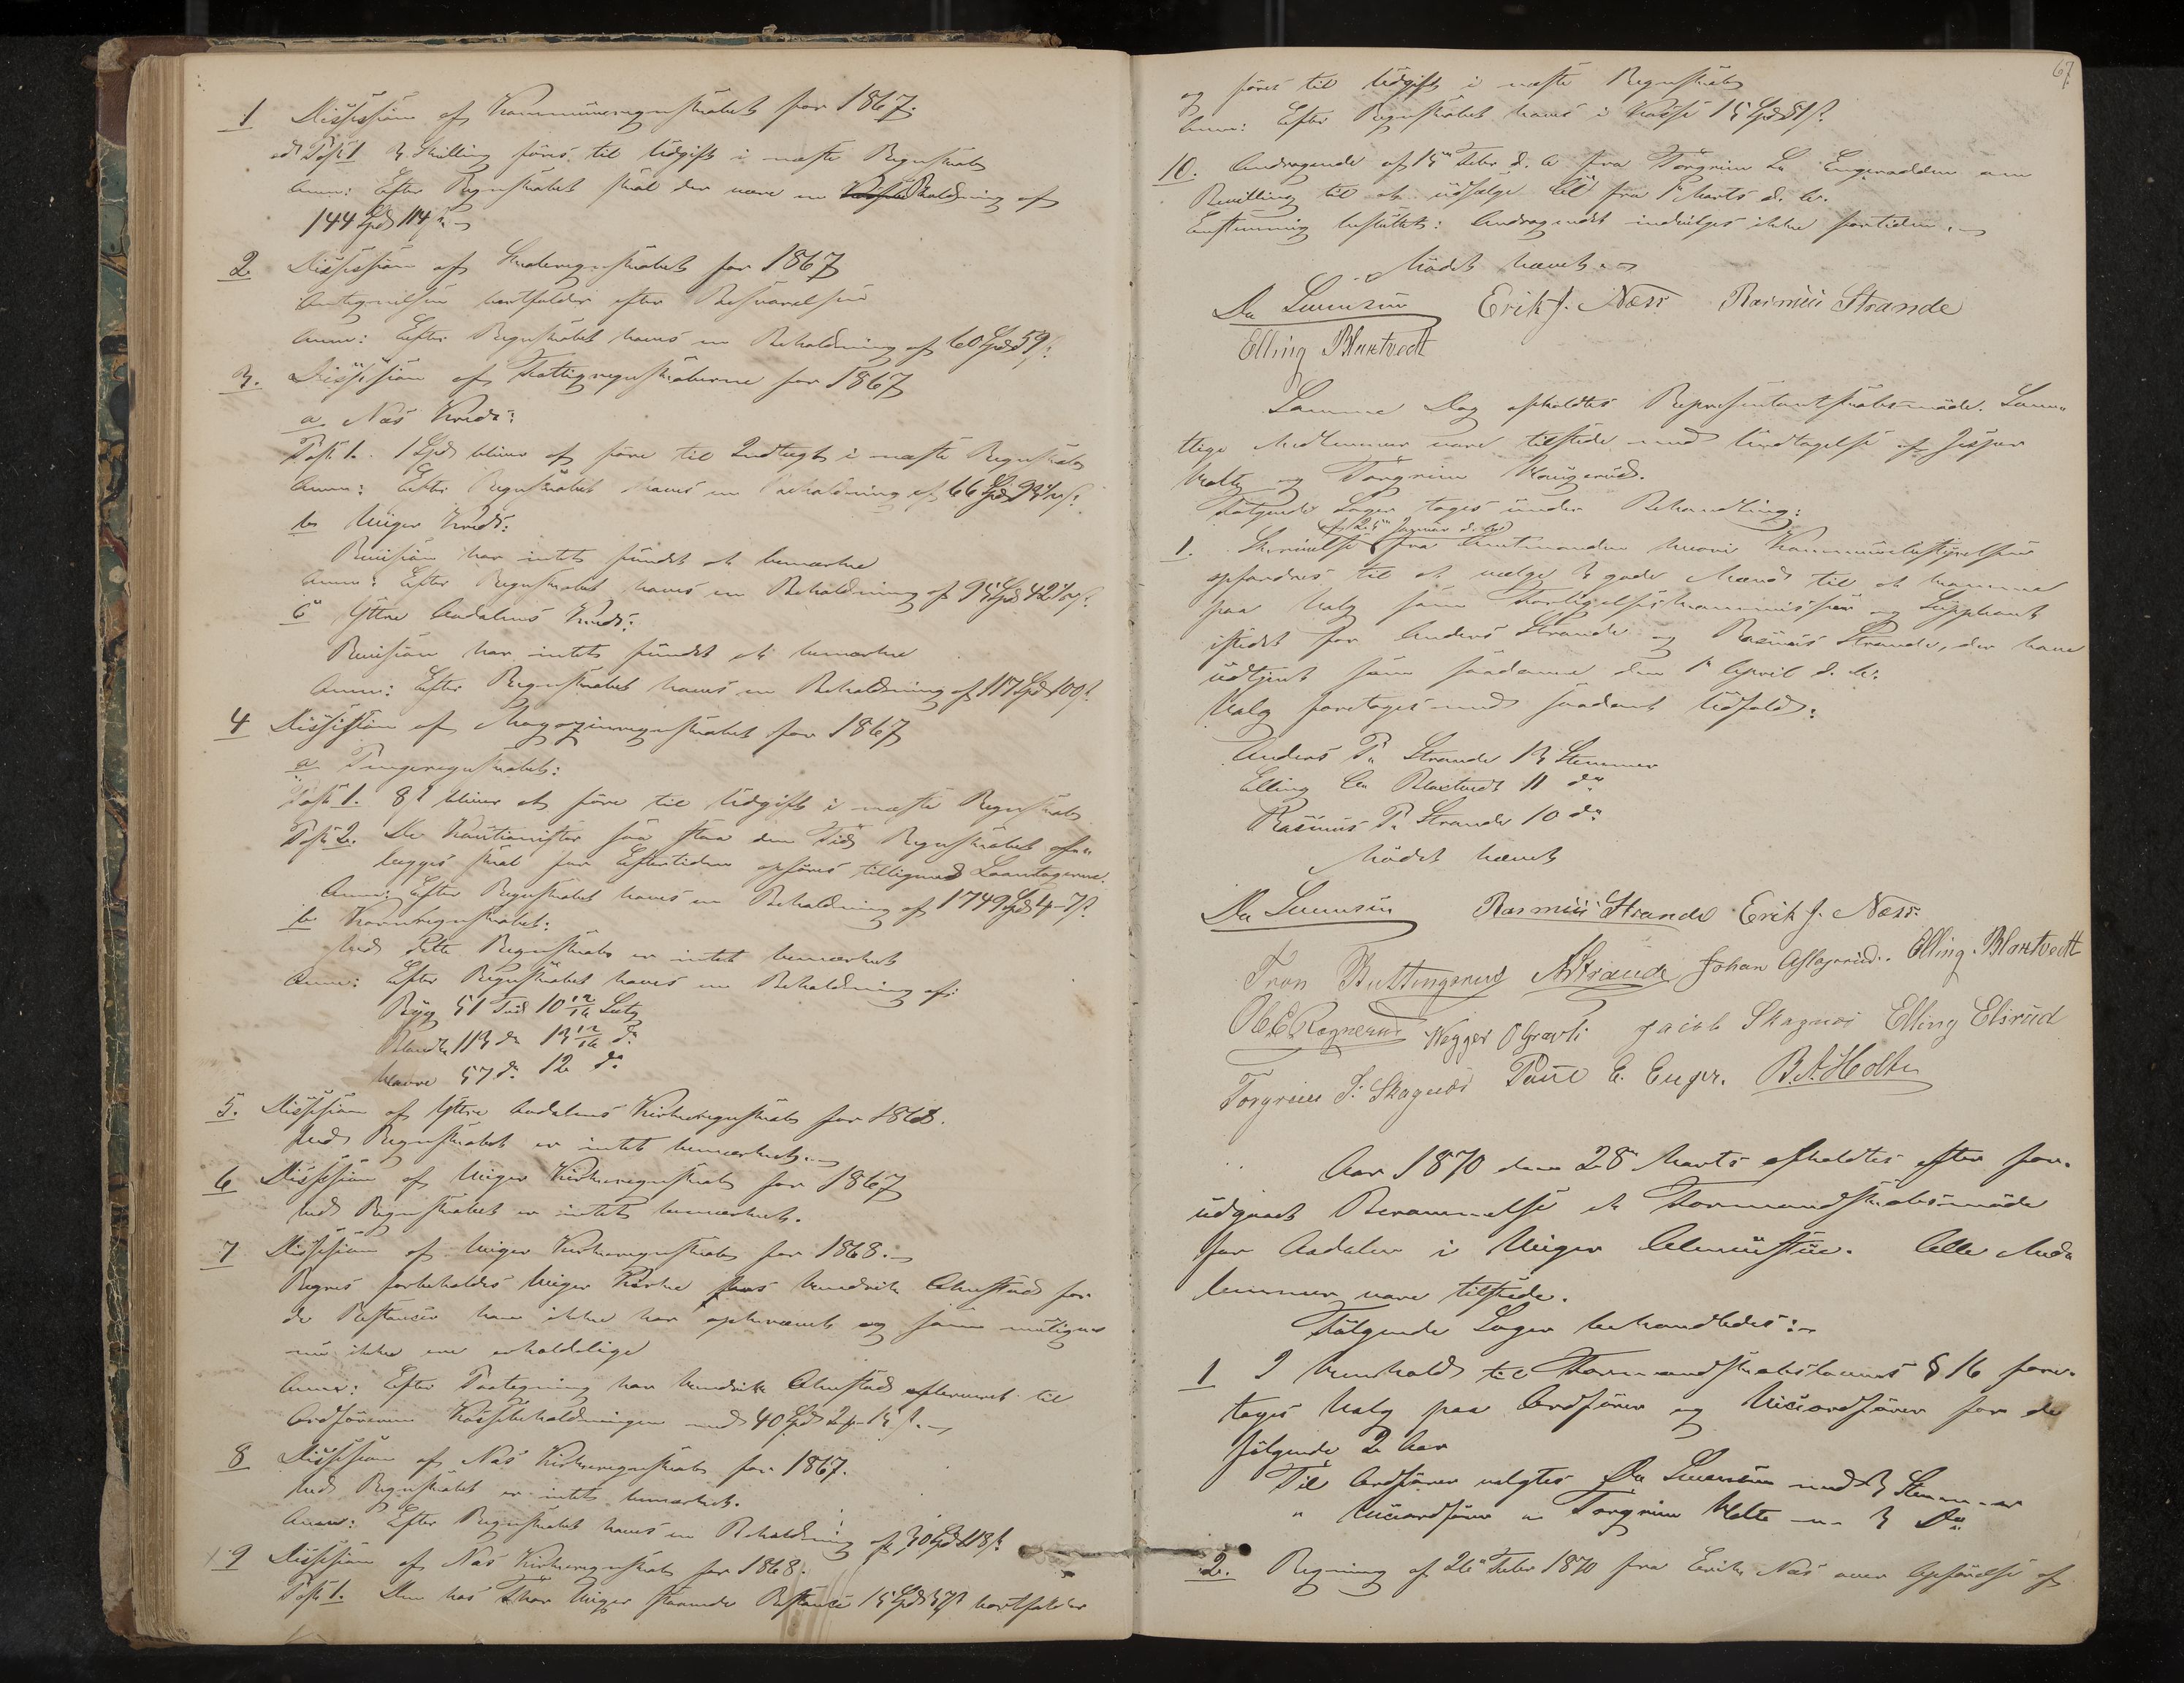 1 Dissision af Kommuneregnskabet for 1867.
ad Post 1. 3 Skilling føres til Udgift i næste Regnskab
Anm: Efter Regnskabet skal der være en Beholdning af
144 Spd 114 s.
2 Dissision af Skoleregnskabet for 1867
Antegnelsen bortfalder efter Besvarelsen
Anm: Efter Regnskabet haves en Beholdning af 60 Spd 59 s.
3. Dissision af Fattigregnskaberne for 1867
a. Næs Kreds:
Post 1. 1 Spd bliver at føre til Indtægt i næste Regnskab
Anm: Efter Regnskabet haves en Beholdning af 66 Spd
b Viger Kreds:
Revision har intet fundet at bemærke
Anm: Efter Regnskabet haves en Beholdning af
c Yttre Aadalens Kreds:
Revision har intet fundet at bemærke
Anm: Efter Regnskabet haves en Beholdning af 117 Spd 100 s.
4 Dissision af Magazinregnskabet for 1867
a Pengeregnskabet:
Post 1. 8 s bliver at føre til Udgift i næste Regnskab
Post 2. De Kautionister som staa den Tid Regnskabet af-
lægges skal for Eftertiden opføres tilligemed Laantagerne.
Anm: Efter Regnskabet haves en Beholdning af 1749 Spd 4-7 s.
b Kornregnskabet:
Ved dette Regnskab er intet bemærket
Anm: Efter Regnskabet haves en Beholdning af:
Rug 51 Tdr 10 12/16 Sætg
Blandk 113 do 13 12/16 do
Havre 57 do 12 do
5. Dissision af Yttre Aadalens Kirkeregnskab for 1868.
Ved Regnskabet er intet bemærket.
6 Dissision af Viger Kirkeregnskab for 1867
Ved Regnskabet er intet bemærket.
7 Dissision af Viger Kirkeregnskab for 1868.
Regres forbeholdes Viger Kirke hos Hendrik Almstad for
de Restancer han ikke har opkrævet og som muligens
nu ikke ere erholdelige
Anm: Efter Paategning har Hendrik Almstad afleveret til
Ordføreren Kassebeholdningen med 40 Spd 2-15 s.
8 Dissision af Næs Kirkeregnskab for 1867.
Ved Regnskabet er intet bemærket.
Anm: Efter Regnskabet haves en Beholdning af 30 Spd 118 s
9 Dissision af Næs Kirkeregnskab for 1868.
Post 1. Den hos Thor Viger staaende Restance 15 Spd 37 s bortfalder
67
og føres til Udgift i næste Regnskab
Anm: Efter Regnskabet haves i Kasse 15 Spd 81 s.
10. Andragende af 15de Febr d. A fra Torgrim L. Engerodden om
Bevilling til at udsælge Øl fra 1ste Marts d. A.
Enstemmig besluttet: Andragendet indvilges ikke fortiden.
Mødet hævet.
Ole Svensen Erik J. Næss Rasmus Strande
Elling Blaxtvedt
Samme Dag afholdtes Repræsentantskabsmøde. Sam-
tlige Medlemmer vare tilstede med Undtagelse af Gissur
Holte og Torgrim Haugerud.
Følgende Sager toges under Behandling:
af 25de Januar d. A
1. Skrivelse fra Amtmanden hvori Kommunebestyrelsen
opfordres til at vælge 3 gode Mænd til at komme
paa Valg som Forligelseskommissær og Supleant
istedet for Anders Strande og Rasmus Strande, der have
udtjent som saadanne den 1ste April d. A.
Valg foretoges med saadant Udfald:
Anders P. Strande 13 Stemmer
Elling A. Blaxtvedt 11 do
Rasmus P. Strande 10 do
Mødet hævet
Ole Svensen Rasmus Strande Erik J. Næss.
Tron Buttingsrud AStrande Johan Aslagsrud. Elling Blaxtvedt
Ole E Ragnerud Vegger O Grøvli Jacob Skagnæs Elling Elsrud
Torgrim J. Skagnæs Paul E. Enger. B. A. Holte
Aar 1870 den 28de Marts afholdtes efter for-
udgaaet Berammelse et Formandskabsmøde
for Aadalen i Viger Almustue. Alle Med-
lemmer vare tilstede.
Følgende Sager behandledes:
1 I Henhold til Formandskabslovens § 16 fore-
toges Valg paa Ordfører og Viceordfører for de
følgende 2 Aar
Til Ordfører valgtes Ole Svensen med 3 Stemmer
" Viceordfører " Torgrim Holte -"- 3 Do
2. Regning af 26de Febr 1870 fra Erik Næs over Opførelse af